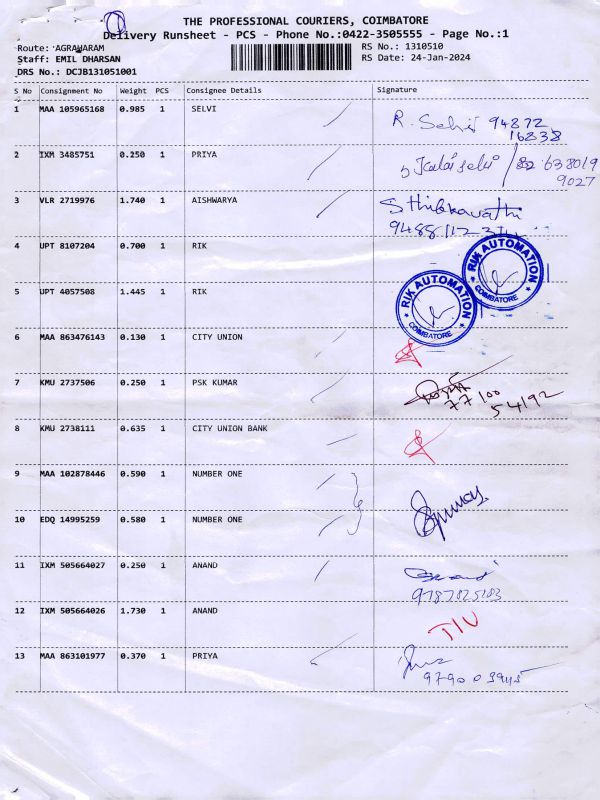 THE PROFESSIONAL COURIERS, COIMBATORE
Delivery Runsheet - PCS - Phone No.:0422-3505555 - Page No.:1
Route: AGRAHARAM
RS No.: 1310510
Staff: EMIL DHARSAN
RS Date: 24-Jan-2024
DRS No.: DCJB131051001
S No Consignment No Weight PCS Consignee Details Signature
1 MAA 105965168 0.985 1 SELVI R. Selvi 94872
16838
2 IXM 3485751 0.250 1 PRIYA 638019
9027
3 VLR 2719976 1.740 1 AISHWARYA
4 UPT 8107204 0.700 1 RIK
RIK AUTOMATION
COIMBATORE
5 UPT 4057508 1.445 1 RIK
RIK AUTOMATION
COIMBATORE
6 MAA 863476143 0.130 1 CITY UNION
7 KMU 2737506 0.250 1 PSK KUMAR
77100
54192
8 KMU 2738111 0.635 1 CITY UNION BANK
9 MAA 102878446 0.590 1 NUMBER ONE
10 EDQ 14995259 0.580 1 NUMBER ONE
11 IXM 505664027 0.250 1 ANAND
12 IXM 505664026 1.730 1 ANAND
13 MAA 863101977 0.370 1 PRIYA